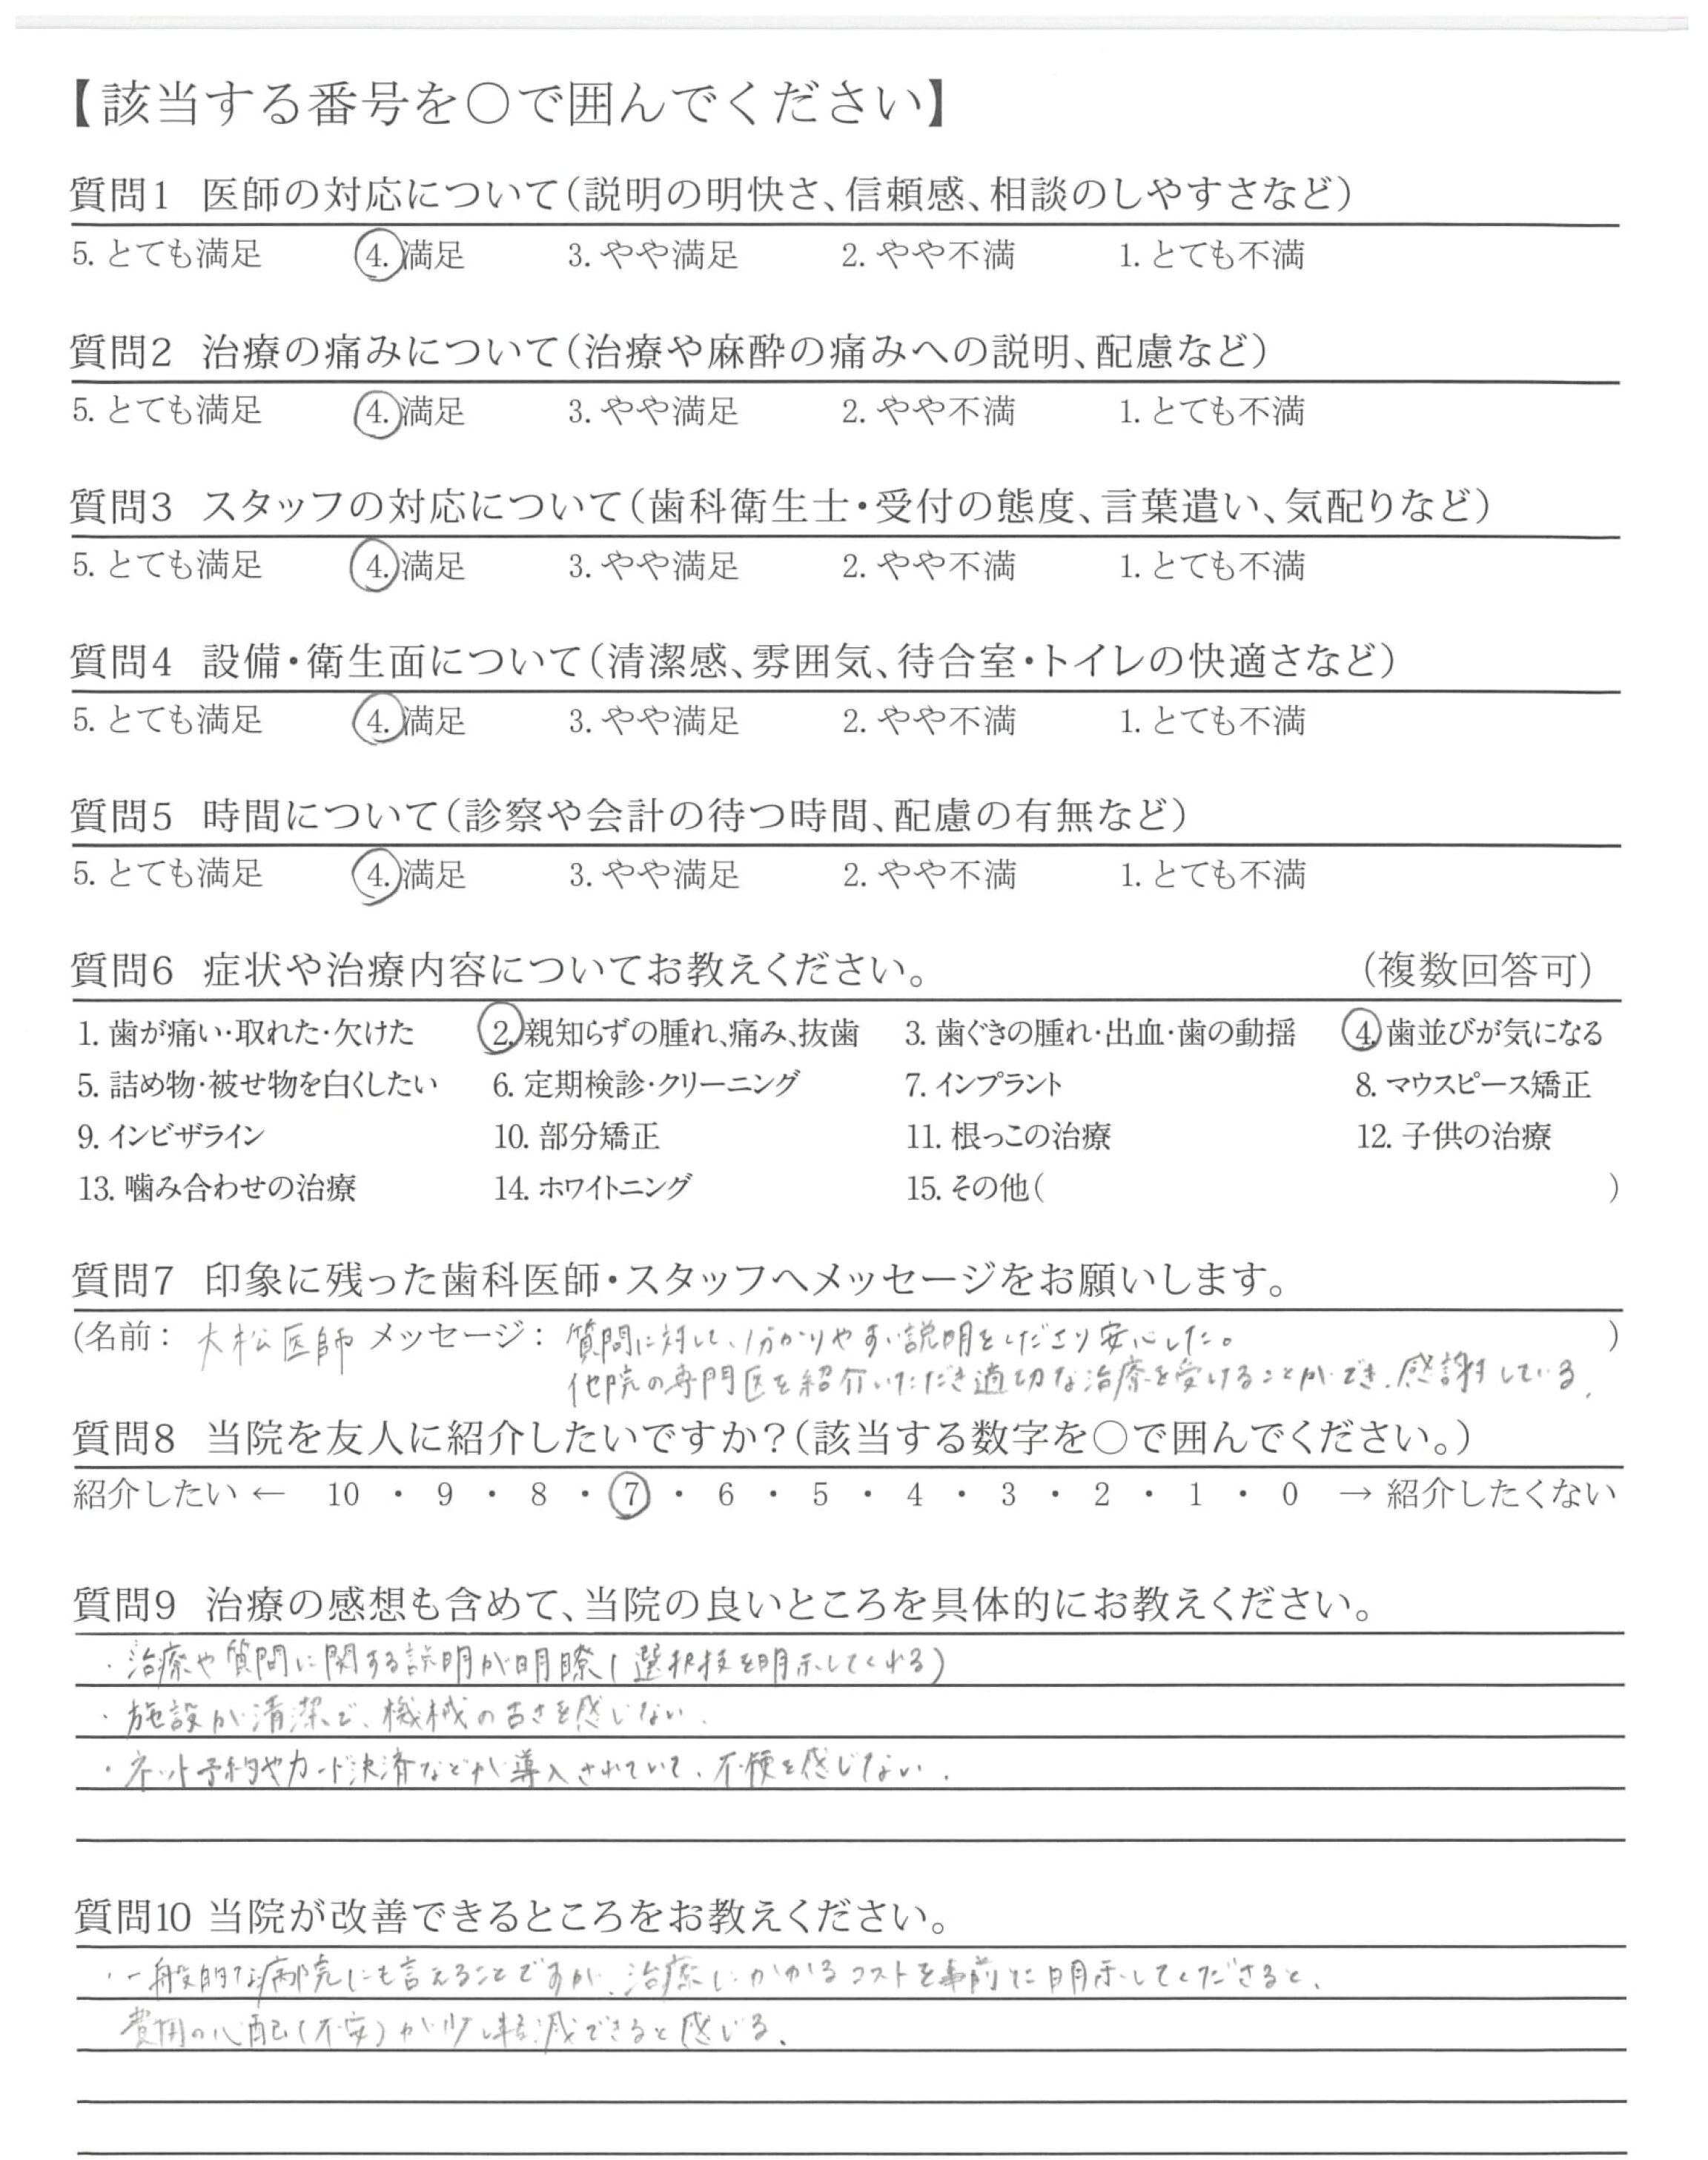 【該当する番号を〇で囲んでください】
質問1 医師の対応について（説明の明快さ、信頼感、相談のしやすさなど）
5. とても満足 4. 満足 3. やや満足 2. やや不満 1. とても不満
質問2 治療の痛みについて（治療や麻酔の痛みへの説明、配慮など）
5. とても満足 4. 満足 3. やや満足 2. やや不満 1. とても不満
質問3 スタッフの対応について（歯科衛生士・受付の態度、言葉遣い、気配りなど）
5. とても満足 4. 満足 3. やや満足 2. やや不満 1. とても不満
質問4 設備・衛生面について（清潔感、雰囲気、待合室・トイレの快適さなど）
5. とても満足 4. 満足 3. やや満足 2. やや不満 1. とても不満
質問5 時間について（診察や会計の待つ時間、配慮の有無など）
5. とても満足 4. 満足 3. やや満足 2. やや不満 1. とても不満
質問6 症状や治療内容についてお教えください。 （複数回答可）
1. 歯が痛い・取れた・欠けた 2. 親知らずの腫れ、痛み、抜歯 3. 歯ぐきの腫れ・出血・歯の動揺 4. 歯並びが気になる
5. 詰め物・被せ物を白くしたい 6. 定期検診・クリーニング 7. インプラント 8. マウスピース矯正
9. インビザライン 10. 部分矯正 11. 根っこの治療 12. 子供の治療
13. 噛み合わせの治療 14. ホワイトニング 15. その他（ ）
質問7 印象に残った歯科医師・スタッフへメッセージをお願いします。
（名前： 大松医師 メッセージ： 質問に対して、分かりやすい説明をしださり安心した。 ）
他院の専門医を紹介いただき適切な治療を受けることができ、感謝している。
質問8 当院を友人に紹介したいですか？（該当する数字を〇で囲んでください。）
紹介したい ← 10 ・ 9 ・ 8 ・ 7 ・ 6 ・ 5 ・ 4 ・ 3 ・ 2 ・ 1 ・ 0 → 紹介したくない
質問9 治療の感想も含めて、当院の良いところを具体的にお教えください。
・治療や質問に関する説明が明瞭（選択枝を明示してくれる）
・施設が清潔で、機械の古さを感じない。
・ネット予約やカード決済などが導入されていて、不便を感じない。
質問10 当院が改善できるところをお教えください。
・一般的な病院にも言えることですが、治療にかかるコストを事前に明示してくださると、
費用の心配（不安）が少し軽減できると感じる。